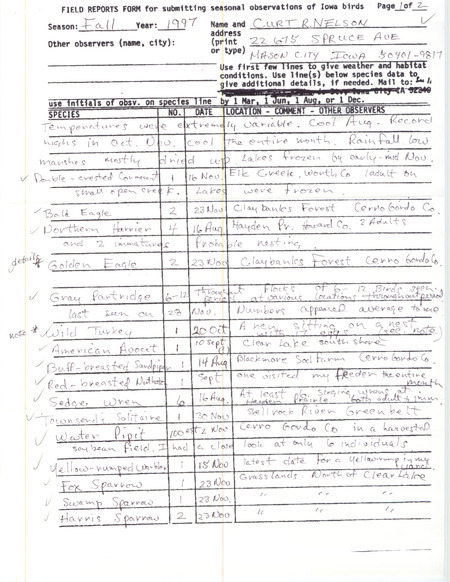 FIELD REPORTS FORM for submitting seasonal observations of Iowa birds Page 1 of 2
Season: Fall Year: 1997 Name and CURT R. NELSON
Other observers (name, city): address 22675 SPRUCE AVE
(print or type) MASON CITY IOWA 50401-9217
Use first few lines to give weather and habitat
conditions. Use line(s) below species data to
give additional details, if needed. Mail to:
use initials of obsv. on species line by 1 Mar, 1 Jun, 1 Aug, or 1 Dec.
SPECIES NO. DATE LOCATION - COMMENT - OTHER OBSERVERS
Temperatures were extremely variable. Cool Aug. Record
highs in Oct. Nov. cool the entire month. Rainfall low
marshes mostly dried up Lakes frozen by early-mid Nov.
Double-crested Cormorant 1 16 Nov Elk Creek, Worth Co 1 adult on
small open creek. Lakes were frozen.
Bald Eagle 2 23 Nov Claybanks Forest Cerro Gordo Co.
Northern Harrier 4 16 Aug Hayden Pr. Howard Co. 2 Adults
and 2 immatures Probable nesting.
details * Golden Eagle 2 23 Nov Claybanks Forest Cerro Gordo Co.
Gray Partridge 6-12 throughout period Flocks of 6-12 birds
at various locations throughout period
last seen on 23 Nov. Numbers appeared average to me
note * Wild Turkey 1 20 Oct A hen sitting on a nest
with eggs (see note)
American Avocet 1 10 Sept Clear Lake south shore
Buff-breasted Sandpiper 1 14 Aug Blackmore Sod farm Cerro Gordo Co.
Red-breasted Nuthatch 1 Sept one visited my feeder the entire
month
Sedge Wren 6 16 Aug At least 6 singing wrens at
Hayden Prairie both adult & imm.
Townsend's Solitaire 1 30 Nov Shellrock River Greenbelt
Water Pipit 100 est 2 Nov Cerro Gordo Co in a harvested
soybean field. I had a close look at only 6 individuals
Yellow-rumped Warbler 1 15 Nov latest date for a Yellowrump in my
yard
Fox Sparrow 1 23 Nov Grasslands North of Clear Lake
Swamp Sparrow 1 23 Nov. " " "
Harris Sparrow 2 23 Nov " " "